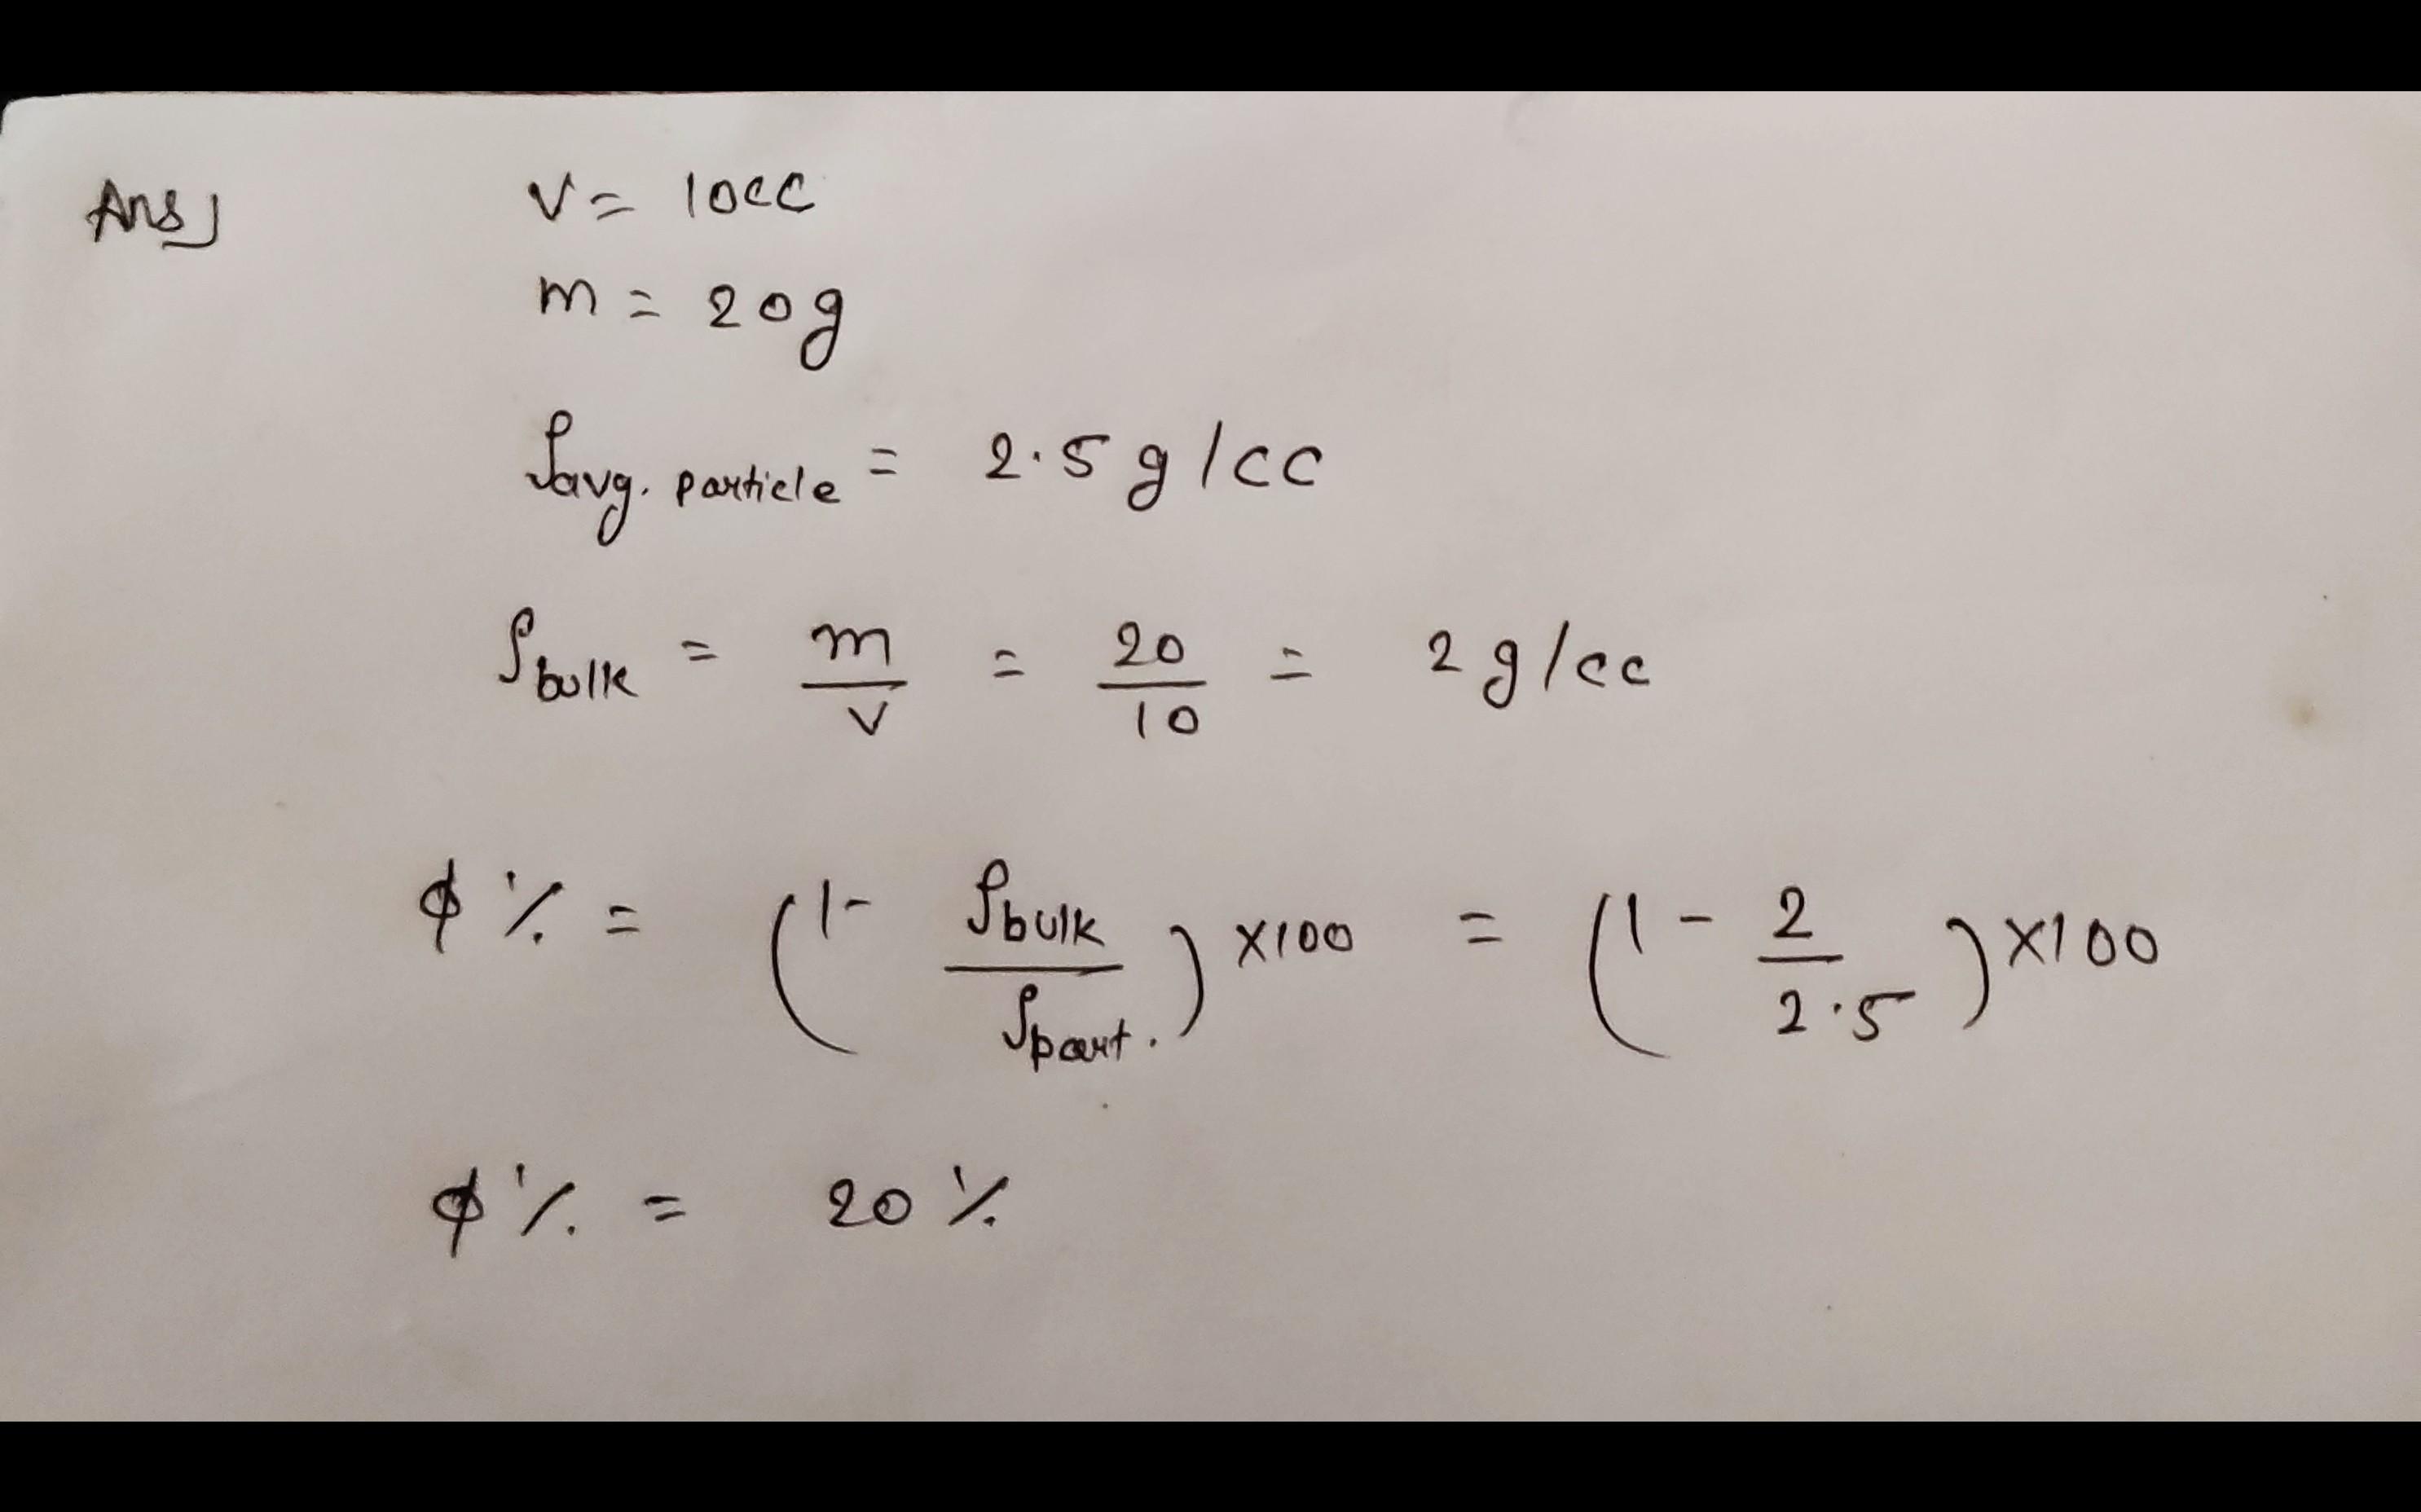 Ans] V = 10cc
m = 20g
ρavg. particle = 2.5 g/cc
ρbulk = m/V = 20/10 = 2 g/cc
ϕ % = (1 - ρbulk/ρpart.) ×100 = (1 - 2/2.5) ×100
ϕ % = 20 %